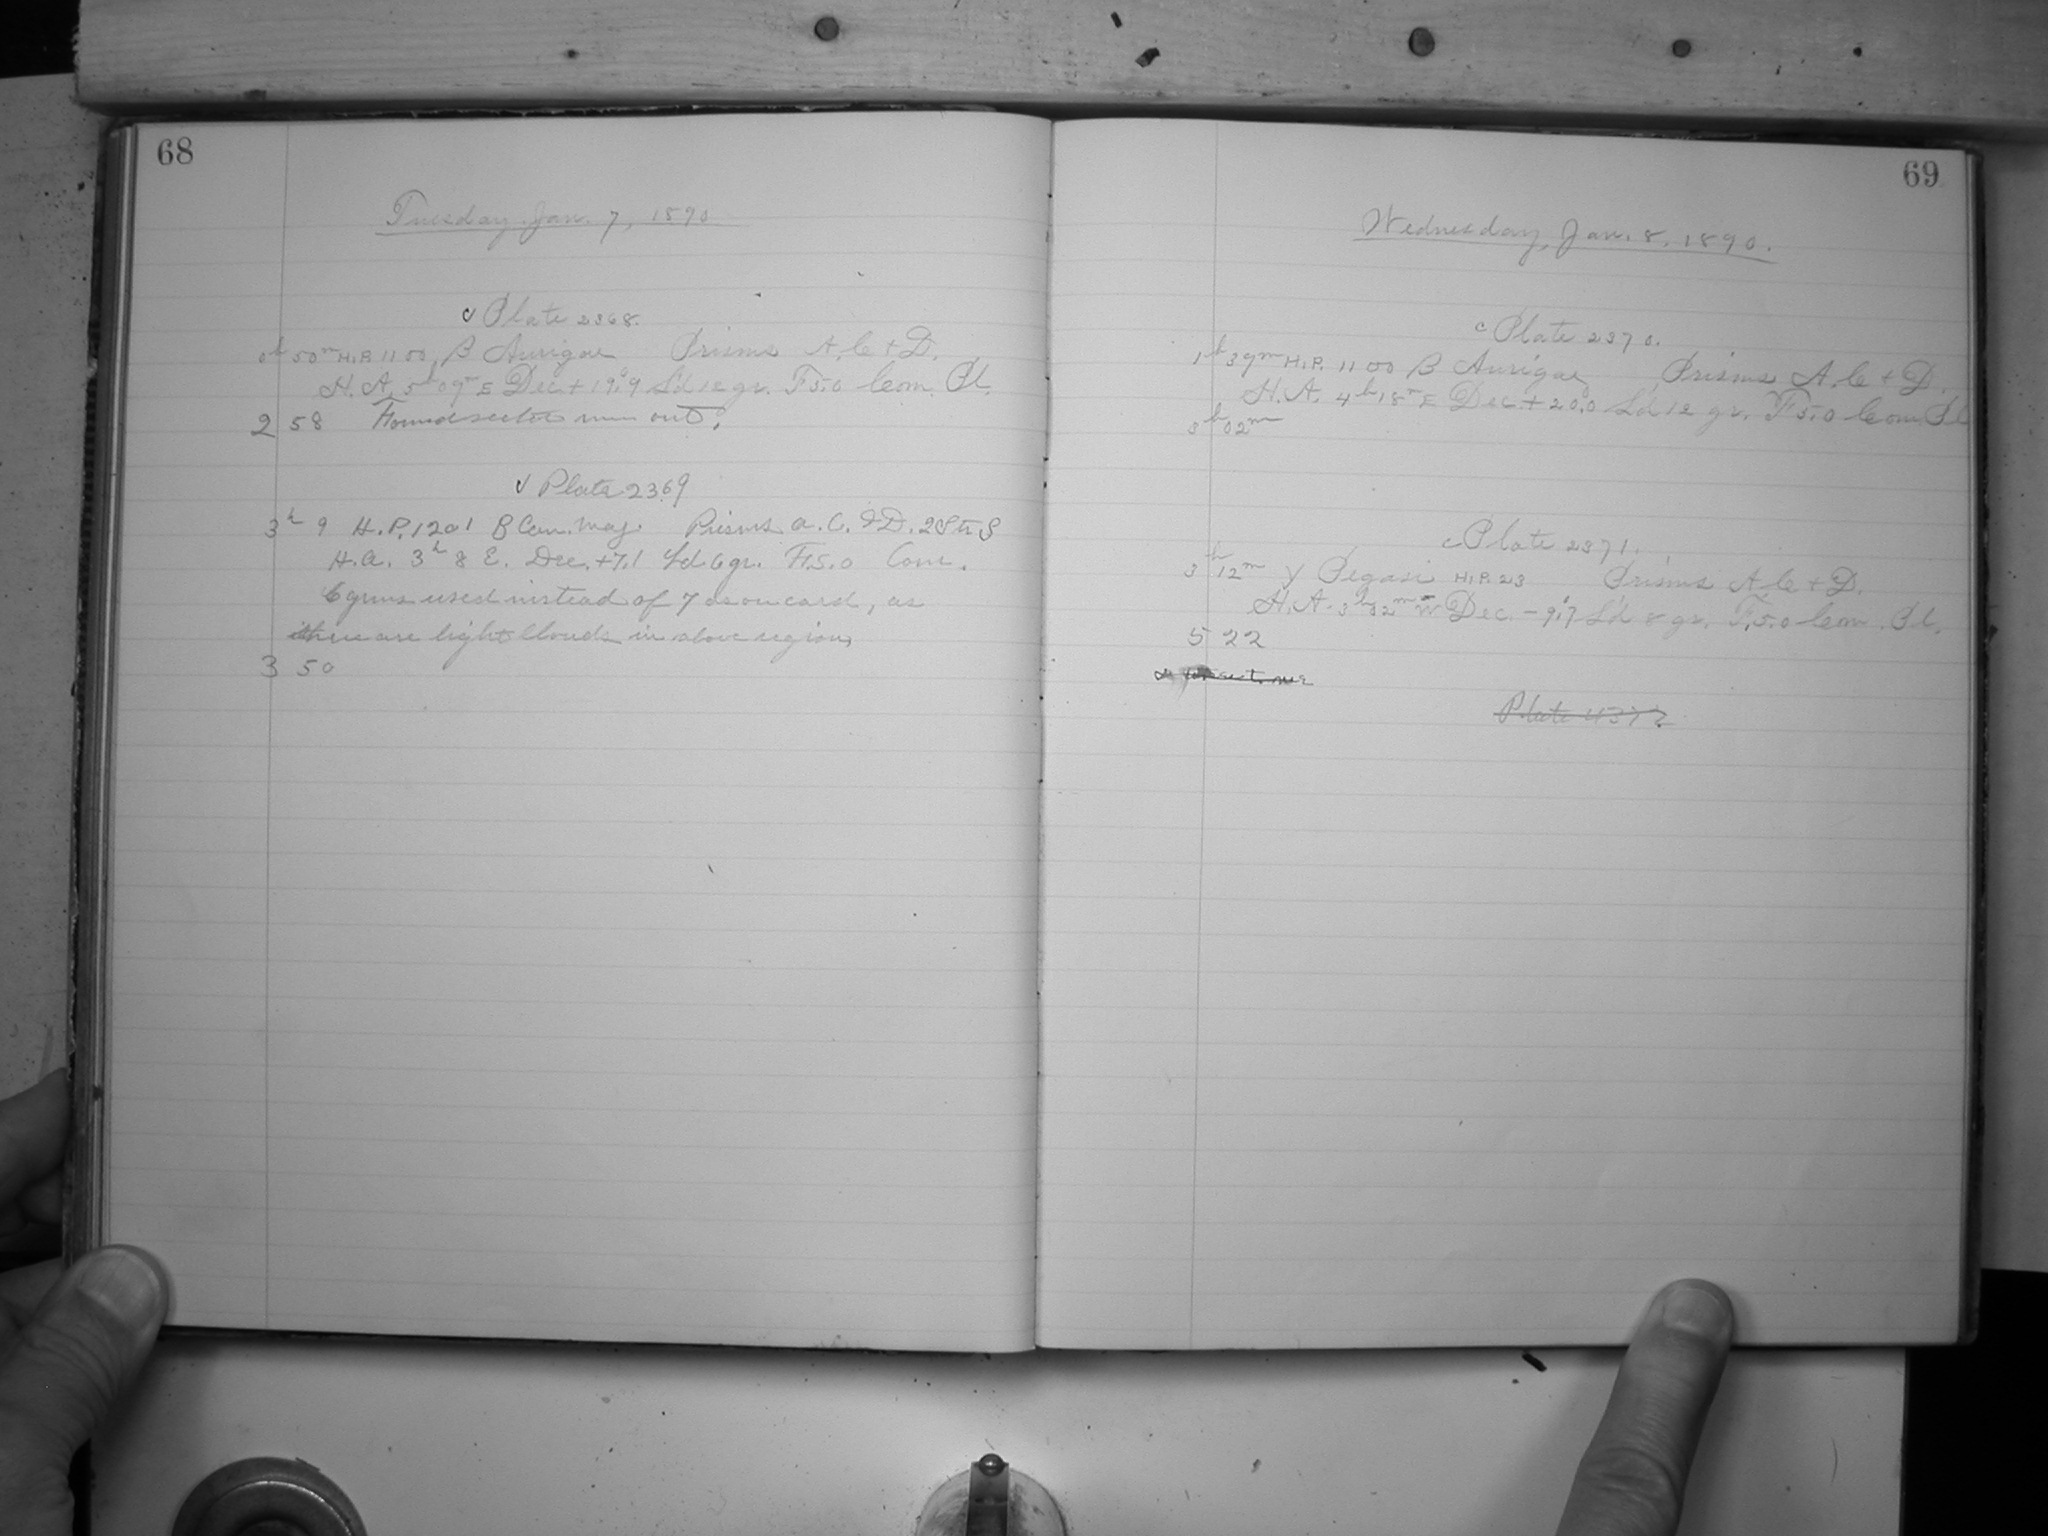 68
Tuesday, Jan. 7, 1890
Plate 2368.
0h 50m H.P. 1100, β Aurigae Prisms A, C + D.
H.A. 5h 09m E Dec + 19.9 Ld 12 gr. F 5.0 Com. Pl.
2 58 Found sector run out.
Plate 2369
3h 9 H.P. 1201 β Can. Maj. Prisms A. C. & D.
H.A. 3h 8 E. Dec. +7.1 Ld 6 gr. F. 5.0 Com.
6 grms used instead of 7 as on card, as
there are light clouds in above region
3 50
69
Wednesday, Jan. 8, 1890.
Plate 2370.
1h 39m H.P. 1100 β Aurigae Prisms A, C + D.
H.A. 4h 18m E Dec. + 20.0 Ld 12 gr. F 5.0 Com. Pl
3h 02m
Plate 2371.
3h 12m γ Pegasi H.P. 23 Prisms A, C + D.
H.A. 3h 32m W Dec. - 9.7 Ld 8 gr. F. 5.0 Com. Pl.
5 22
Plate